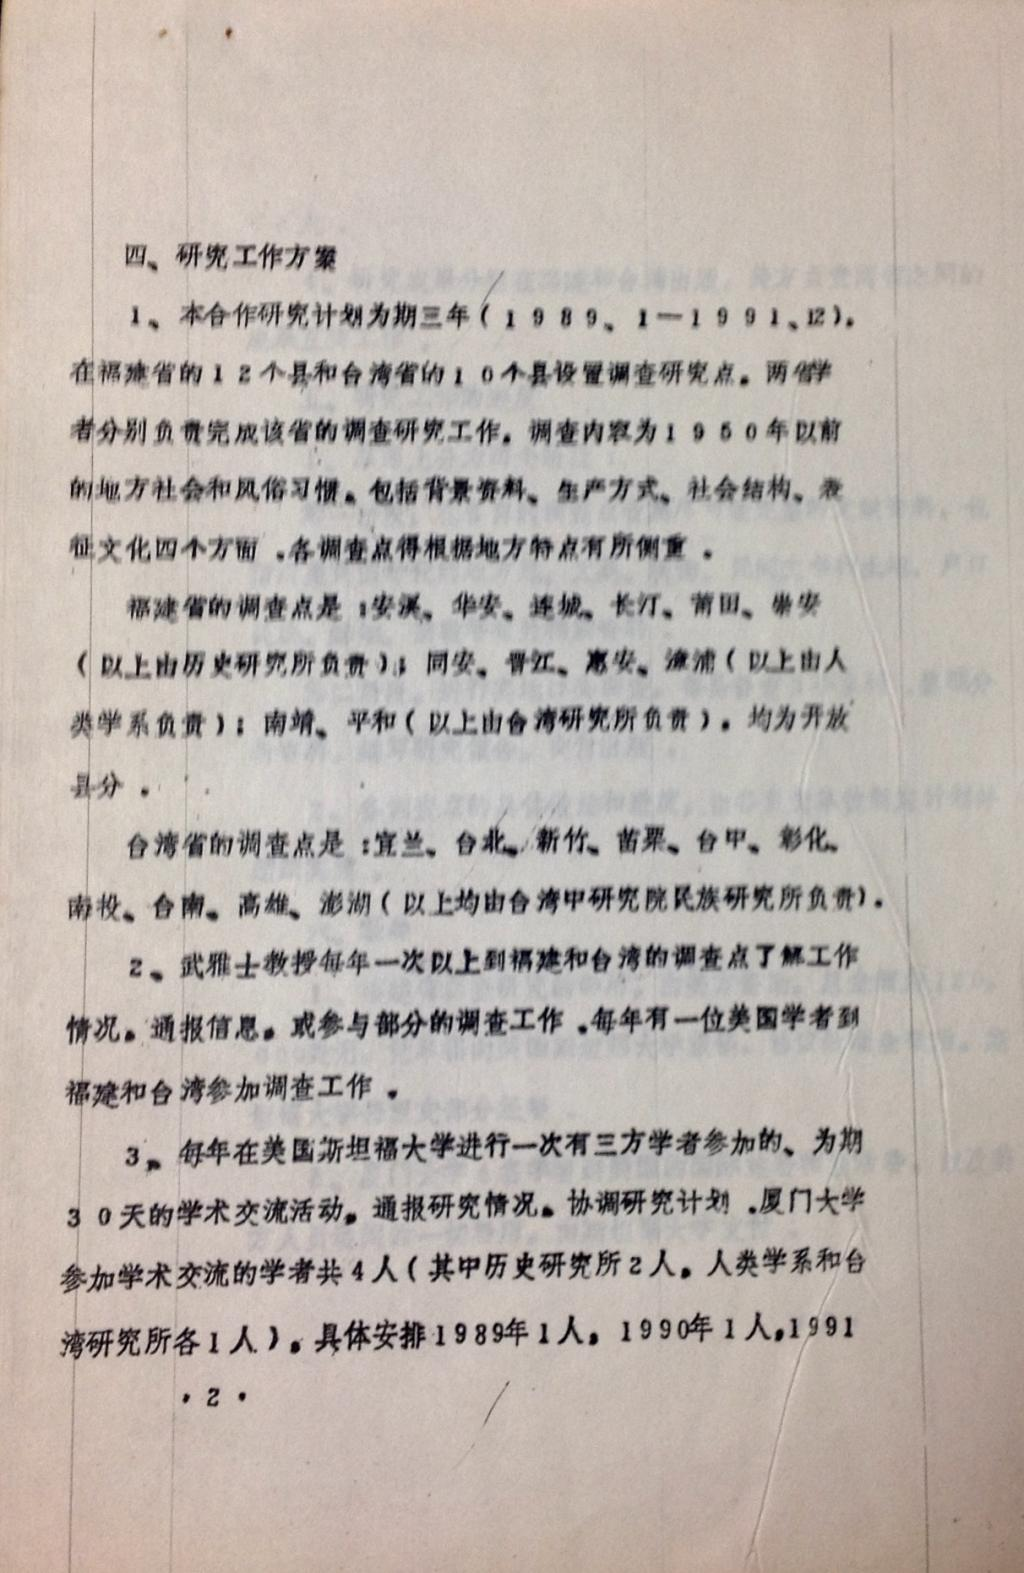 四、研究工作方案
1、本合作研究计划为期三年(1989、1—1991、12)。
在福建省的12个县和台湾省的10个县设置调查研究点。两省学
者分别负责完成该省的调查研究工作。调查内容为1950年以前
的地方社会和风俗习惯。包括背景资料、生产方式、社会结构、表
征文化四个方面。各调查点得根据地方特点有所侧重。
福建省的调查点是:安溪、华安、连城、长汀、莆田、崇安
(以上由历史研究所负责);同安、晋江、惠安、漳浦(以上由人
类学系负责);南靖、平和(以上由台湾研究所负责)。均为开放
县分。
台湾省的调查点是:宜兰、台北、新竹、苗栗、台中、彰化、
南投、台南、高雄、澎湖(以上均由台湾中研究院民族研究所负责)。
2、武雅士教授每年一次以上到福建和台湾的调查点了解工作
情况。通报信息。或参与部分的调查工作。每年有一位美国学者到
福建和台湾参加调查工作。
3、每年在美国斯坦福大学进行一次有三方学者参加的、为期
30天的学术交流活动。通报研究情况。协调研究计划。厦门大学
参加学术交流的学者共4人(其中历史研究所2人。人类学系和台
湾研究所各1人)。具体安排1989年1人。1990年1人。1991
·2·